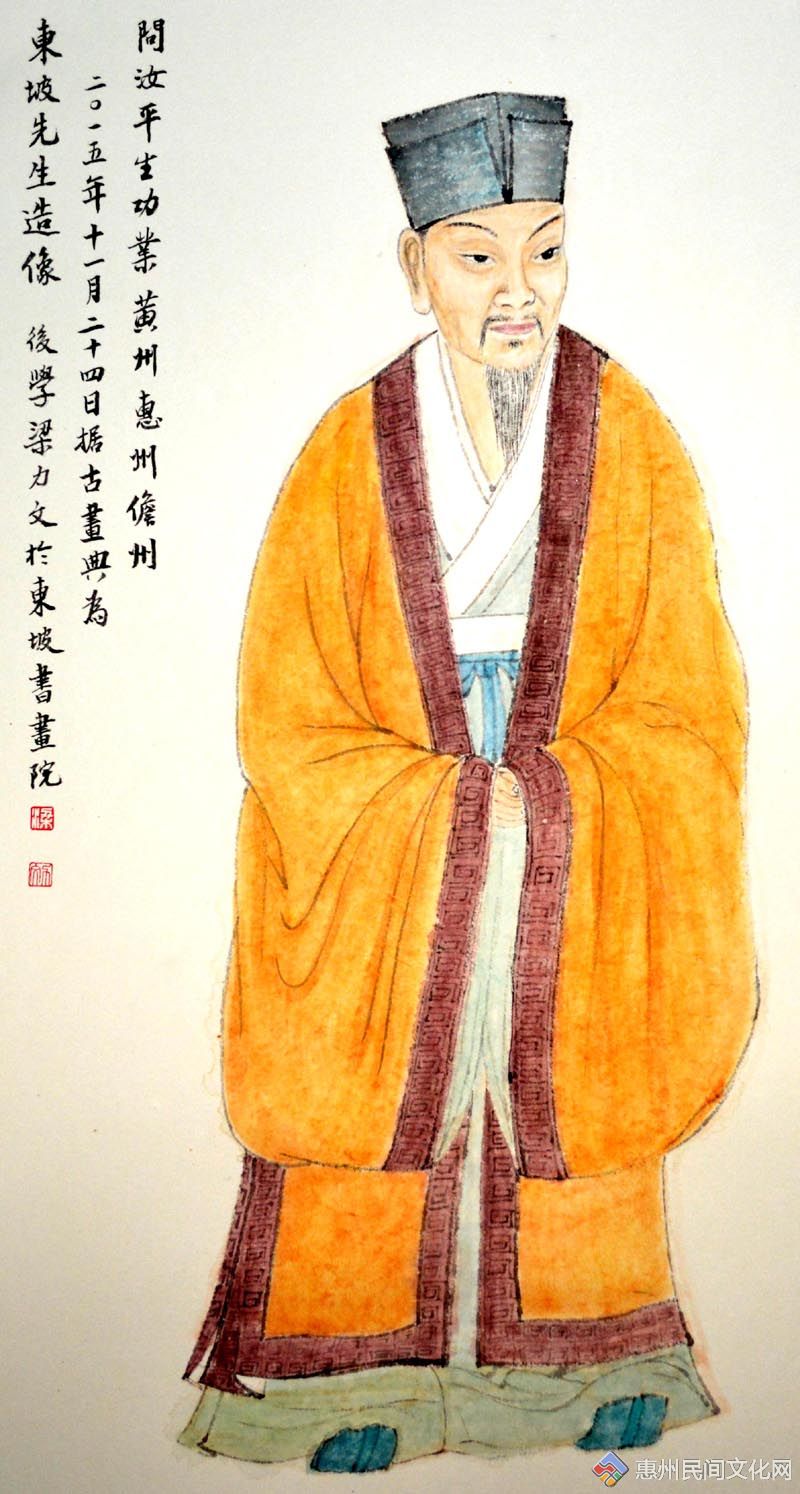 問汝平生功業黃州惠州儋州
二〇一五年十一月二十四日据古畫典為
東坡先生造像 後學梁力文於東坡書畫院
梁
惠州民间文化网